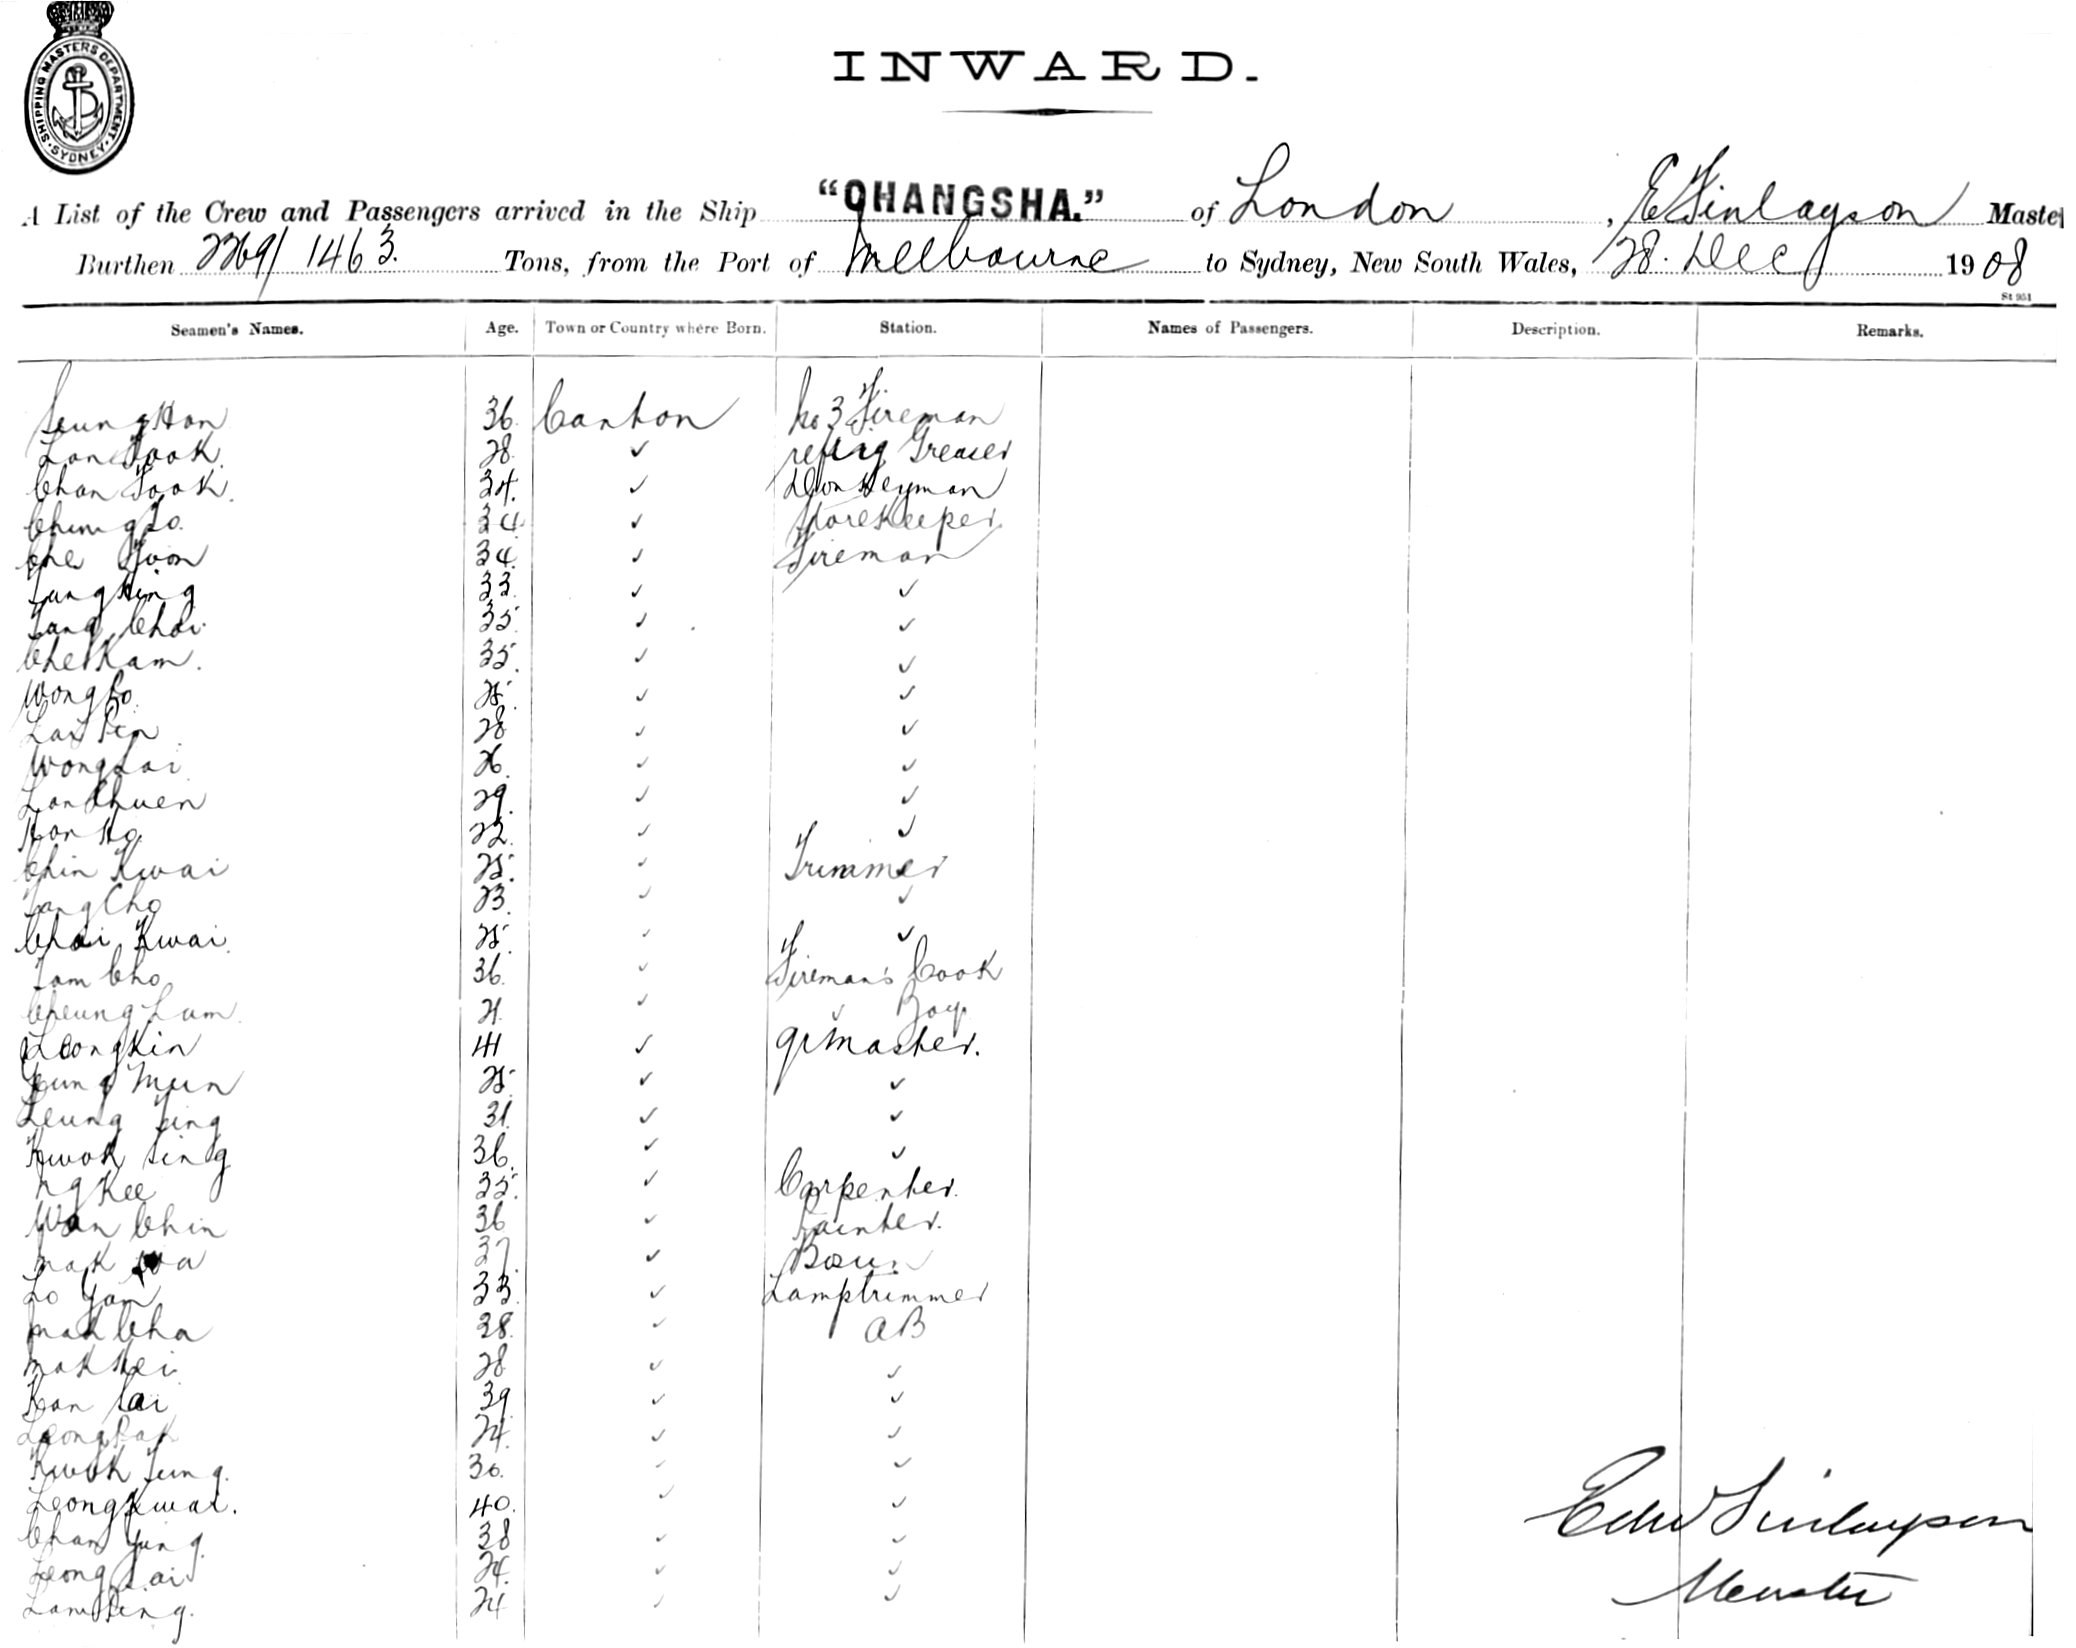 SHIPPING MASTERS DEPARTMENT. SYDNEY.
INWARD.
A List of the Crew and Passengers arrived in the Ship "CHANGSHA." of London, E Finlayson Master
Burthen 2269/1463. Tons, from the Port of Melbourne to Sydney, New South Wales, 28. Dec 1908
St 951
Seamen's Names. Age. Town or Country where Born. Station. Names of Passengers. Description. Remarks.
36 Canton No 3 Fireman
28 ✓ refrig Greaser
Chan Fook 34. ✓ Donkeyman
34 ✓ Storekeeper
Che Yoon 34. ✓ Fireman
33 ✓ ✓
35 ✓ ✓
Che Kam. 35. ✓ ✓
Wong Po 25. ✓ ✓
28 ✓ ✓
Wong Lai 26. ✓ ✓
29. ✓ ✓
Hon Ho 22. ✓ ✓
Chin Kwai 25. ✓ Trimmer
Cho 23. ✓ ✓
Choi Kwai 25. ✓ ✓
Tam Cho 36. ✓ Fireman's Cook
Cheung Lam 21. ✓ ✓ Boy.
Leong Kin 41 ✓ Qrmaster.
Mun 25. ✓ ✓
Leung 31. ✓ ✓
Kwok Sing 36. ✓ ✓
Ng Kee 35. ✓ Carpenter.
Wan Chin 36 ✓ Painter.
Mak 37. ✓ Bosun
Lo Yam 33. ✓ Lamptrimmer
Mak Cha 28. ✓ AB
Mak Kei 28 ✓ ✓
39 ✓ ✓
Leong 24. ✓ ✓
Kwok 30. ✓ ✓
Leong Kwai. 40. ✓ ✓
Chan Yung. 38 ✓ ✓
Leong Lai 24. ✓ ✓
24 ✓ ✓
Edw Finlayson
Master